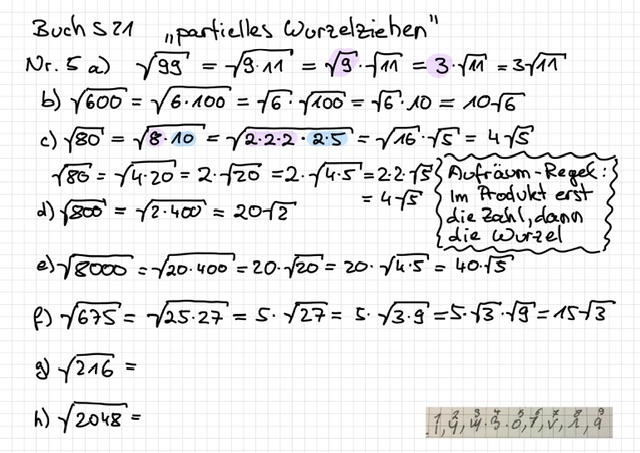 Buch S 21 „partielles Wurzelziehen"
Nr. 5 a) √99 = √9·11 = √9·√11 = 3·√11 = 3√11
b) √600 = √6·100 = √6·√100 = √6·10 = 10√6
c) √80 = √8·10 = √2·2·2·2·5 = √16·√5 = 4√5
√80 = √4·20 = 2·√20 = 2·√4·5 = 2·2·√5
= 4√5
Aufräum-Regel:
Im Produkt erst
die Zahl, dann
die Wurzel
d) √800 = √2·400 = 20√2
e) √8000 = √20·400 = 20·√20 = 20·√4·5 = 40·√5
f) √675 = √25·27 = 5·√27 = 5·√3·9 = 5·√3·√9 = 15√3
g) √216 =
h) √2048 =